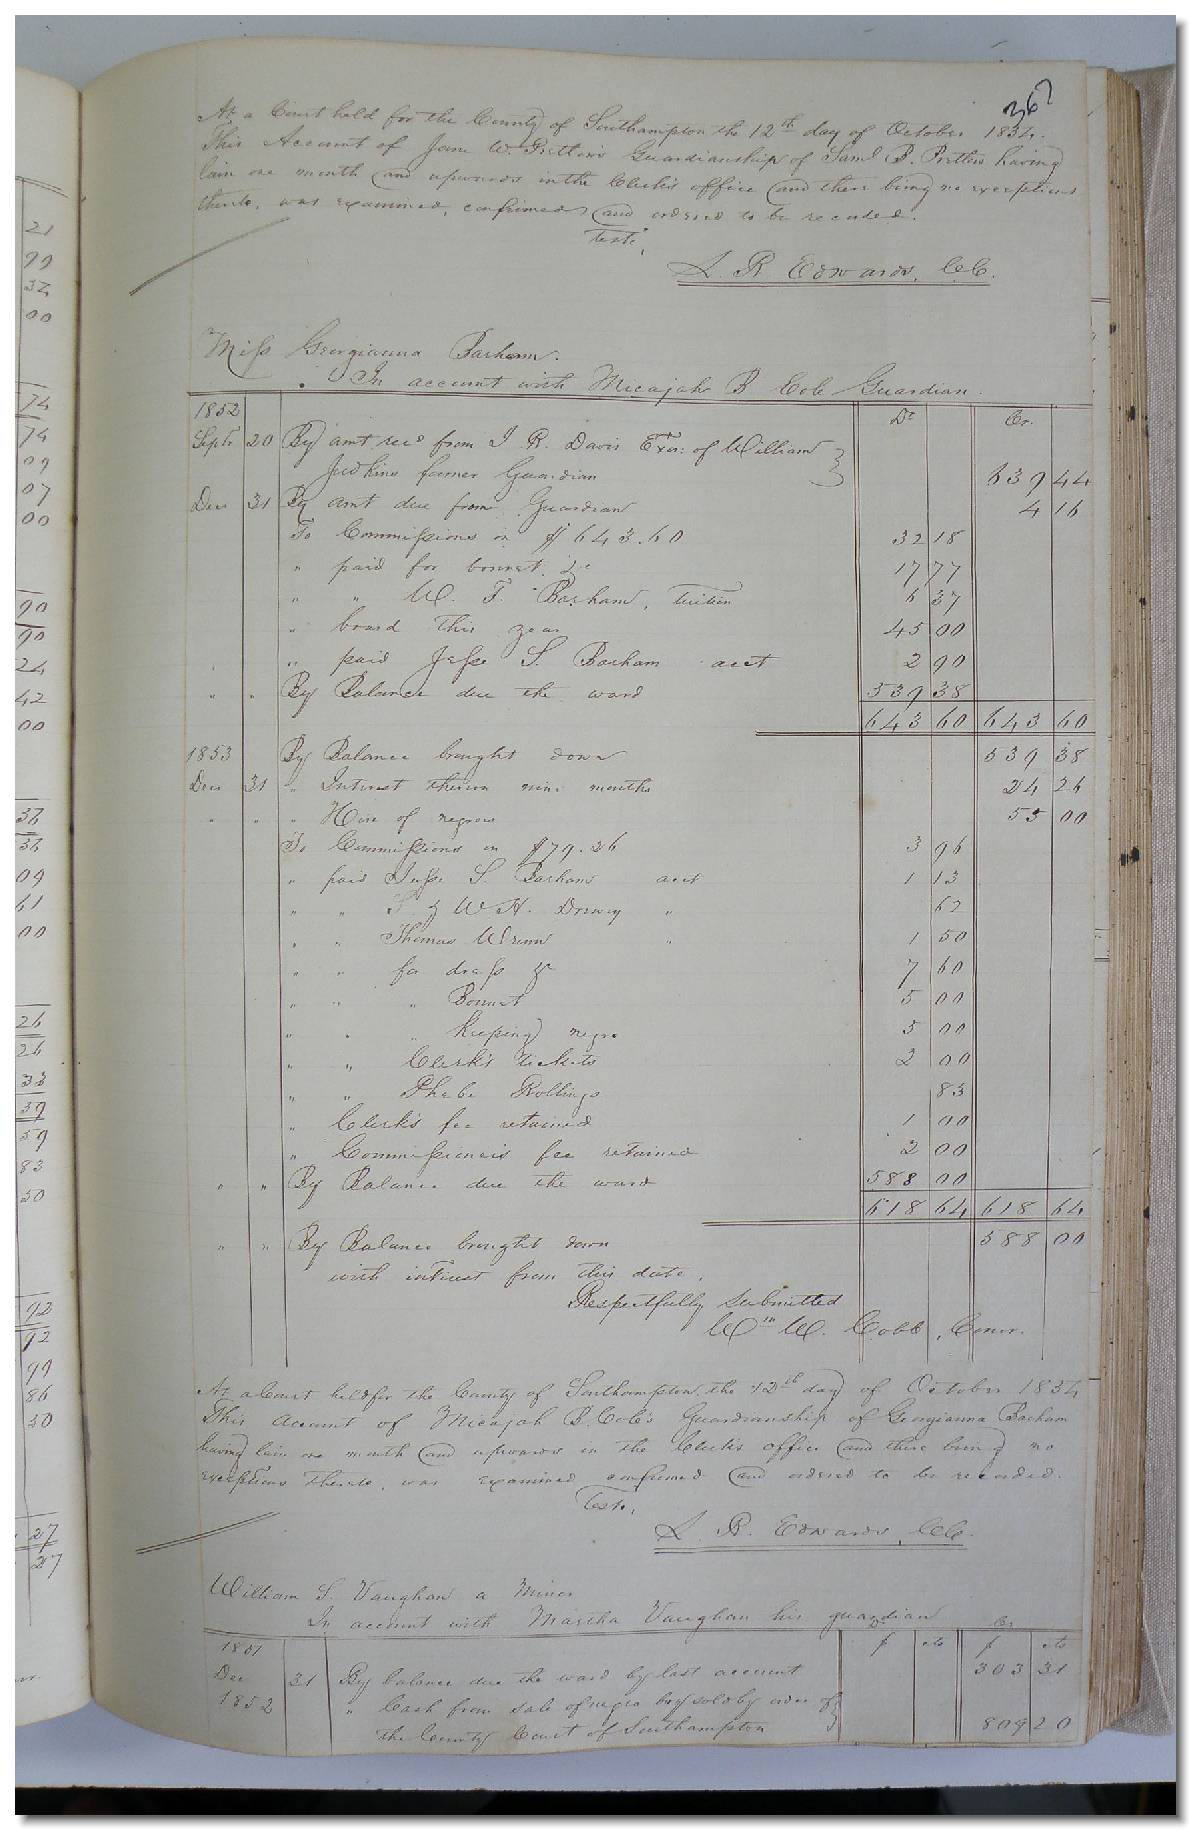 367
At a Court held for the County of Southampton the 12th day of October 1854.
This Account of Jane W. Pretlow's Guardianship of Saml B. Pretlow having
lain one month and upwards in the Clerk's office and there being no exceptions
thereto, was examined, confirmed and ordered to be recorded.
Teste,
L. R. Edwards, C.C.
Miss Georgianna Barham.
In account with Micajah B Cole Guardian.
1852 Dr Cr.
Septr 20 By amt recd from J. R. Davis Exor: of William
Judkins former Guardian 639 44
Dec 31 By amt due from Guardian 4 16
To Commissions on $643.60 32 18
" paid for bonnet &c 17 77
" " W. T. Barham, tuition 6 37
" board this year 45 00
" paid Jesse S. Barham acct 2 90
" " By Balance due the ward 539 38
643 60 643 60
1853 By Balance brought down 539 38
Dec 31 " Interest thereon nine months 24 26
" " " Hire of negroes 55 00
To Commissions on $79.26 3 96
" paid Jesse S. Barham acct 1 13
" " S. & W. H. Drewry " 62
" " Thomas Wrenn " 1 50
" " for dress &c 7 60
" " " Bonnet 5 00
" " " Keeping negro 5 00
" " Clerk's tickets 2 00
" " Phebe Rollings 83
" Clerk's fee retained 1 00
" Commissioners fee retained 2 00
" " By Balance due the ward 588 00
618 64 618 64
" " By Balance brought down 588 00
with interest from this date.
Respectfully submitted
Wm W. Cobb, Comr.
At a Court held for the County of Southampton, the 12th day of October 1854
This account of Micajah B. Cole's Guardianship of Georgianna Barham
having lain one month and upwards in the Clerk's office and there being no
exceptions thereto, was examined confirmed and ordered to be recorded.
Teste,
L. R. Edwards, CC.
William S. Vaughan a Minor
In account with Martha Vaughan his guardian
Dr Cr
1851 $ cts $ cts
Dec 31 By balance due the ward by last account 303 31
1852 " Cash from sale of negro boy sold by order of
the County Court of Southampton 809 20